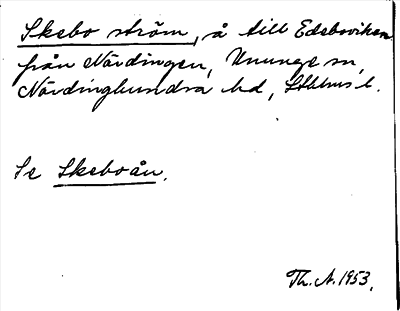 Skebo ström, å till Edeboviken
från Närdingen, Ununge sn,
Närdinghundra hd, Sthlms l.
Se Skeboån.
Th. A. 1953.